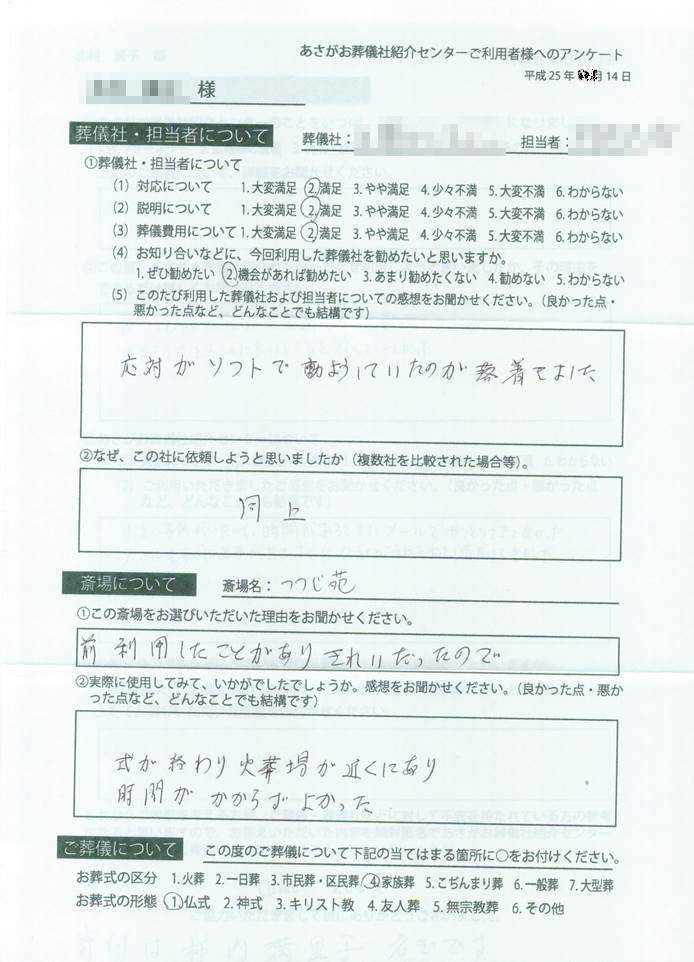 あさがお葬儀社紹介センターご利用者様へのアンケート
平成25年 月14日
様
葬儀社・担当者について 葬儀社: 担当者:
①葬儀社・担当者について
(1) 対応について 1.大変満足 2.満足 3.やや満足 4.少々不満 5.大変不満 6.わからない
(2) 説明について 1.大変満足 2.満足 3.やや満足 4.少々不満 5.大変不満 6.わからない
(3) 葬儀費用について 1.大変満足 2.満足 3.やや満足 4.少々不満 5.大変不満 6.わからない
(4) お知り合いなどに、今回利用した葬儀社を勧めたいと思いますか。
1.ぜひ勧めたい 2.機会があれば勧めたい 3.あまり勧めたくない 4.勧めない 5.わからない
(5) このたび利用した葬儀社および担当者についての感想をお聞かせください。(良かった点・
悪かった点など、どんなことでも結構です)
応対がソフトで していたのが落着きました
②なぜ、この社に依頼しようと思いましたか(複数社を比較された場合等)。
同上
斎場について 斎場名: つつじ苑
①この斎場をお選びいただいた理由をお聞かせください。
前利用したことがありきれいだったので
②実際に使用してみて、いかがでしたでしょうか。感想をお聞かせください。(良かった点・悪か
った点など、どんなことでも結構です)
式が終わり火葬場が近くにあり
時間がかからずよかった
ご葬儀について この度のご葬儀について下記の当てはまる箇所に○をお付けください。
お葬式の区分 1.火葬 2.一日葬 3.市民葬・区民葬 4.家族葬 5.こぢんまり葬 6.一般葬 7.大型葬
お葬式の形態 1.仏式 2.神式 3.キリスト教 4.友人葬 5.無宗教葬 6.その他